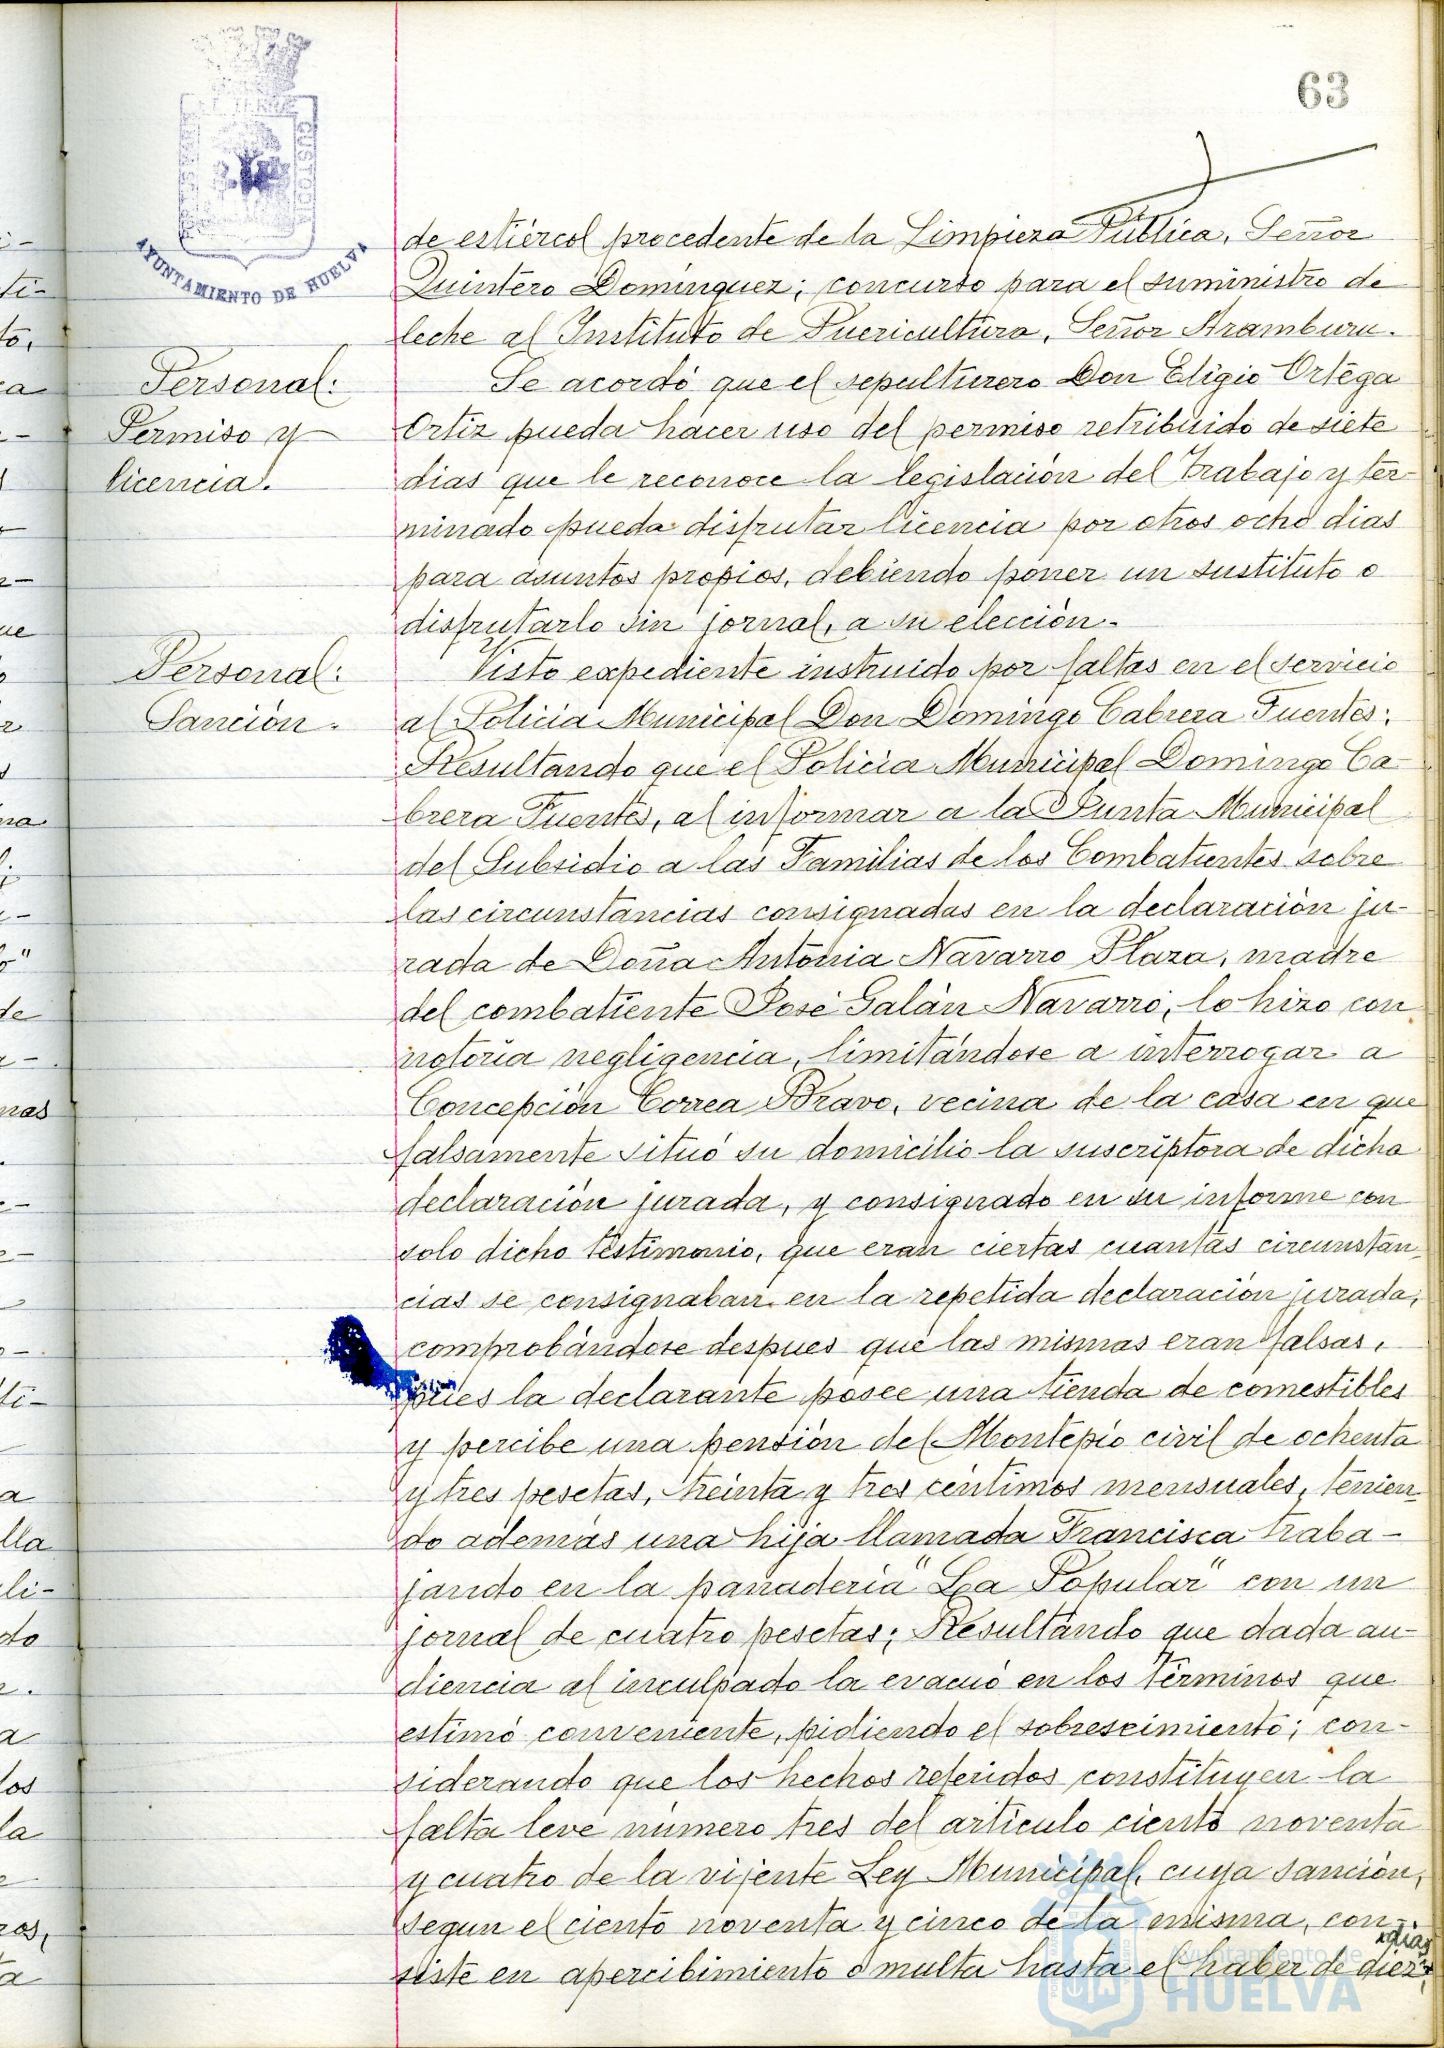 63
AYUNTAMIENTO DE HUELVA
de estiércol procedente de la Limpieza Pública, Señor
Quintero Dominguez; concurso para el suministro de
leche al Instituto de Puericultura, Señor Aramburu.
Personal:
Permiso y
licencia.
Se acordó que el sepulturero Don Eligio Ortega
Ortiz pueda hacer uso del permiso retribuido de siete
dias que le reconoce la legislación del Trabajo y ter-
minado pueda disfrutar licencia por otros ocho dias
para asuntos propios, debiendo poner un sustituto o
disfrutarlo sin jornal, a su elección.
Personal:
Sanción.
Visto expediente instruido por faltas en el servicio
al Policia Municipal Don Domingo Cabrera Fuentes;
Resultando que el Policia Municipal Domingo Ca-
brera Fuentes, al informar a la Junta Municipal
del Subsidio a las Familias de los Combatientes sobre
las circunstancias consignadas en la declaración ju-
rada de Doña Antonia Navarro Plaza, madre
del combatiente José Galán Navarro, lo hizo con
notoria negligencia, limitándose a interrogar a
Concepción Correa Bravo, vecina de la casa en que
falsamente situó su domicilio la suscriptora de dicha
declaración jurada, y consignado en su informe con
solo dicho testimonio, que eran ciertas cuantas circunstan-
cias se consignaban en la repetida declaración jurada,
comprobándose despues que las mismas eran falsas,
pues la declarante posee una tienda de comestibles
y percibe una pensión del Montepío civil de ochenta
y tres pesetas, treinta y tres céntimos mensuales, tenien-
do además una hija llamada Francisca traba-
jando en la panadería "La Popular" con un
jornal de cuatro pesetas; Resultando que dada au-
diencia al inculpado la evacuó en los términos que
estimó conveniente, pidiendo el sobreseimiento; con-
siderando que los hechos referidos constituyen la
falta leve número tres del artículo ciento noventa
y cuatro de la vijente Ley Municipal, cuya sanción,
segun el ciento noventa y cinco de la misma, con-
siste en apercibimiento o multa hasta el haber de diez
dias
Ayuntamiento de
HUELVA